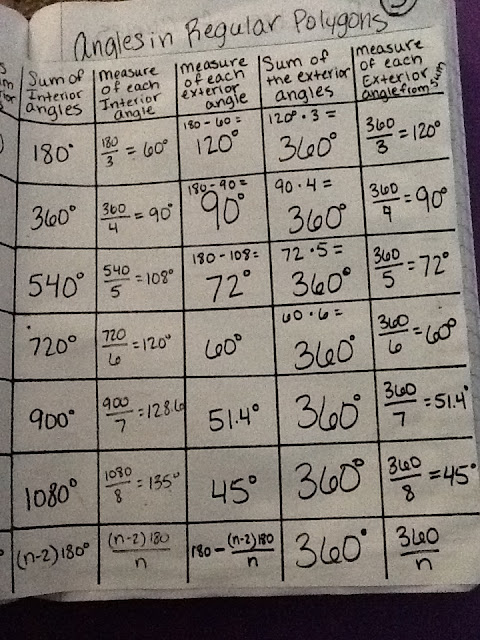 Angles in Regular Polygons
Sum of Interior angles | measure of each Interior angle | measure of each exterior angle | Sum of the exterior angles | measure of each Exterior angle from sum
180° | 180/3 = 60° | 180 - 60 = 120° | 120° · 3 = 360° | 360/3 = 120°
360° | 360/4 = 90° | 180 - 90 = 90° | 90 · 4 = 360° | 360/4 = 90°
540° | 540/5 = 108° | 180 - 108 = 72° | 72 · 5 = 360° | 360/5 = 72°
720° | 720/6 = 120° | 60° | 60 · 6 = 360° | 360/6 = 60°
900° | 900/7 = 128.6 | 51.4° | 360° | 360/7 = 51.4°
1080° | 1080/8 = 135° | 45° | 360° | 360/8 = 45°
(n-2)180° | (n-2)180/n | 180 - (n-2)180/n | 360° | 360/n